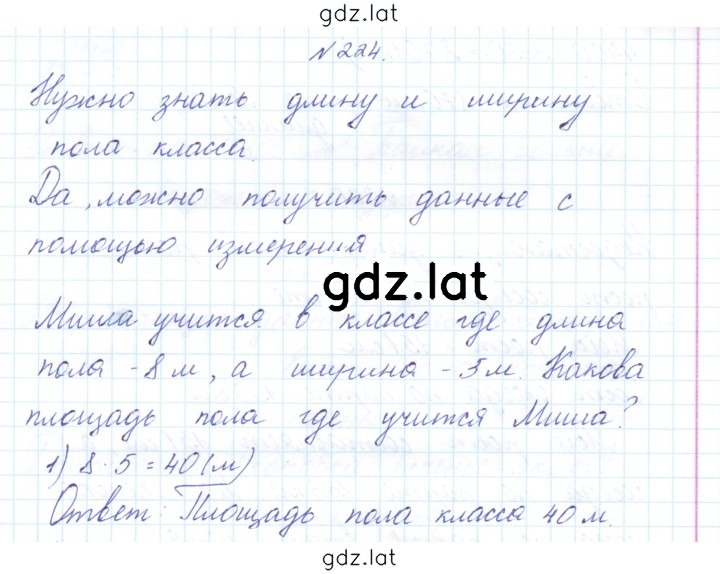 gdz.lat
№224.
Нужно знать длину и ширину
пола класса.
Да, можно получить данные с
помощью измерения
gdz.lat
Миша учится в классе где длина
пола - 8 м, а ширина - 5 м. Какова
площадь пола где учится Миша?
1) 8 · 5 = 40 (м)
Ответ: Площадь пола класса 40 м.
gdz.lat